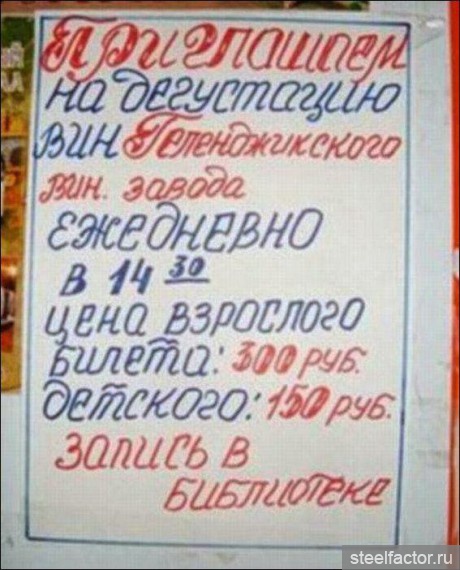 Приглашаем
на дегустацию
вин Геленджикского
вин. завода
ежедневно
в 14 30
цена взрослого
билета: 300 руб.
детского: 150 руб.
запись в
библиотеке
steelfactor.ru